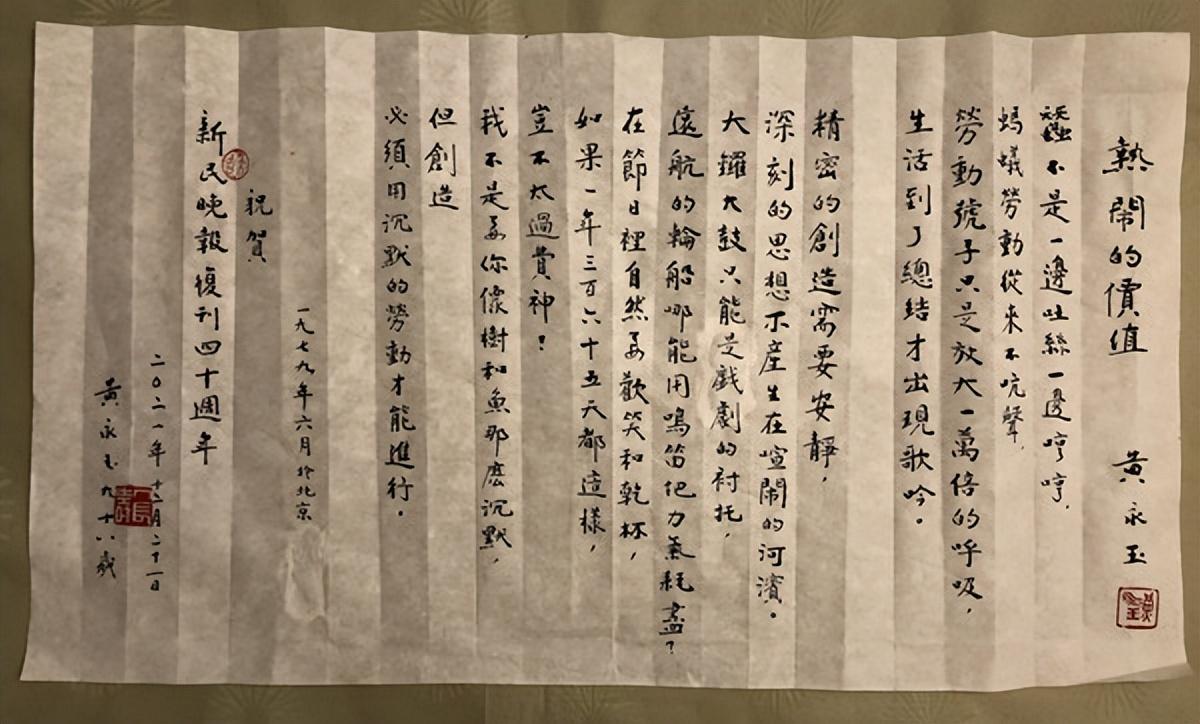 熱鬧的價值 黃永玉
蠶不是一邊吐絲一邊哼哼，
螞蟻勞動從來不吭聲，
勞動號子只是放大一萬倍的呼吸，
生活到了總結才出現歌吟。
精密的創造需要安靜，
深刻的思想不產生在喧鬧的河濱。
大鑼大鼓只能是戲劇的衬托，
遠航的輪船哪能用鳴笛把力氣耗盡？
在節日裡自然要歡笑和乾杯，
如果一年三百六十五天都這樣，
豈不太過費神！
我不是要你像樹和魚那麼沉默，
但創造
必須用沉默的勞動才能進行。
一九七九年六月於北京
祝賀
新民晚報復刊四十週年
二〇二一年十二月二十一日
黃永玉九十八歲